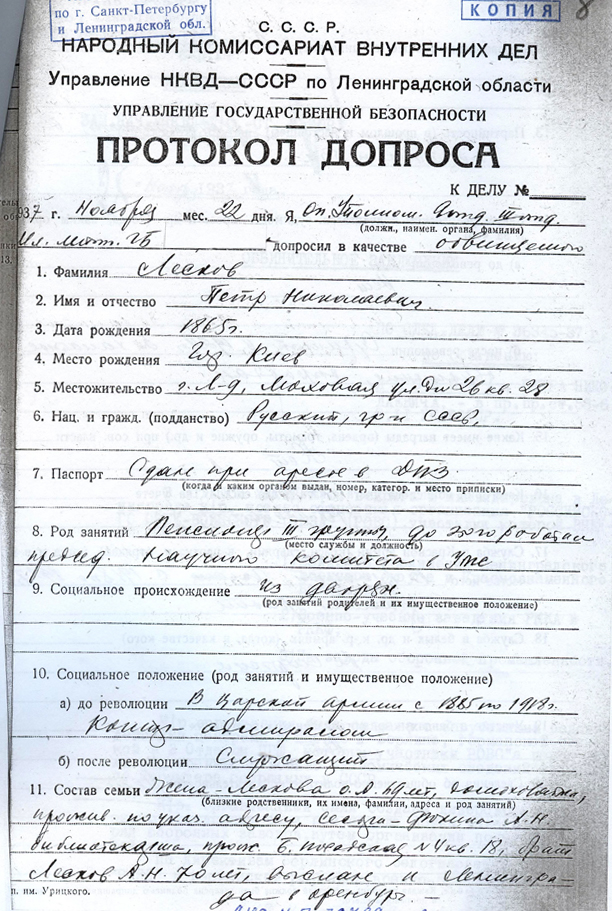 по г. Санкт-Петербургу
и Ленинградской обл.
КОПИЯ
8
С. С. С. Р.
НАРОДНЫЙ КОМИССАРИАТ ВНУТРЕННИХ ДЕЛ
Управление НКВД—СССР по Ленинградской области
УПРАВЛЕНИЕ ГОСУДАРСТВЕННОЙ БЕЗОПАСНОСТИ
ПРОТОКОЛ ДОПРОСА
К ДЕЛУ №
1937 г. ноября мес. 22 дня. Я, Оп.
(должн., наимен. органа, фамилия)
ГБ допросил в качестве обвиняемого
1. Фамилия Лесков
2. Имя и отчество Петр Николаевич.
3. Дата рождения 1865г.
4. Место рождения Гор. Киев
5. Местожительство г. Л-д, Моховая ул. дм 26 кв. 28
6. Нац. и гражд. (подданство) Русский, гр-н СССР,
7. Паспорт Сдан при аресте в ДПЗ.
(когда и каким органом выдан, номер, категор. и место приписки)
8. Род занятий Пенсионер III группы, до этого работал
(место службы и должность)
председ. Научного комитета в
9. Социальное происхождение из дворян.
(род занятий родителей и их имущественное положение)
10. Социальное положение (род занятий и имущественное положение)
а) до революции В царской армии с 1885 по 1918г.
Контр-адмиралом
б) после революции Служащий
11. Состав семьи Жена - Лескова О.Л. 49 лет, домохозяйка,
(близкие родственники, их имена, фамилии, адреса и род занятий)
прожив. по указ. адресу, сестра - Фокина А.Н.
библиотекарша, прож. Б. Посадская №4 кв. 18, брат
Лесков А.Н. выслан из Ленингра-
да в Оренбург. —
п. им. Урицкого.